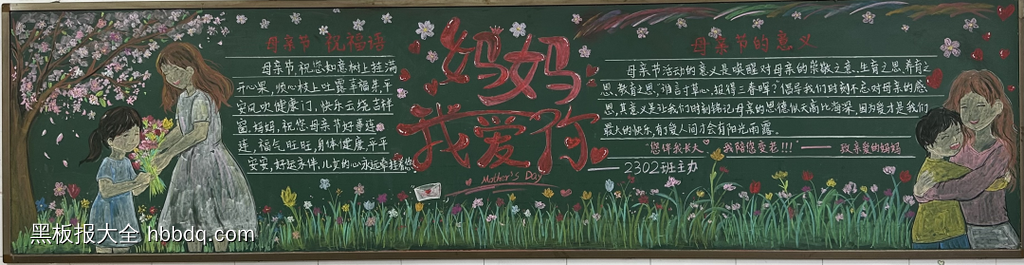 母亲节 祝福语
母亲节,祝您如意树上挂满
开心果,顺心枝上吐露幸福芽,平
安风吹健康门,快乐云绕吉祥
窗,妈妈,祝您母亲节好事连
连,福气旺旺,身体健康,平平
安安,好运永伴,儿女的心永远牵挂着您
妈妈
我爱你
Mother's Day
母亲节的意义
母亲节活动的意义是唤醒对母亲的崇敬之意。生育之恩,养育之
恩,教育之恩,谁言寸草心,报得三春晖?倡导我们时刻不忘对母亲的感
恩,其意义是让我们时刻铭记母亲的恩德似天高比海深,因为爱才是我们
最大的快乐,有爱人间才会有阳光雨露。
"您伴我长大 我陪您变老!!!"——致亲爱的妈妈
——2302班主办
黑板报大全 hbbdq.com